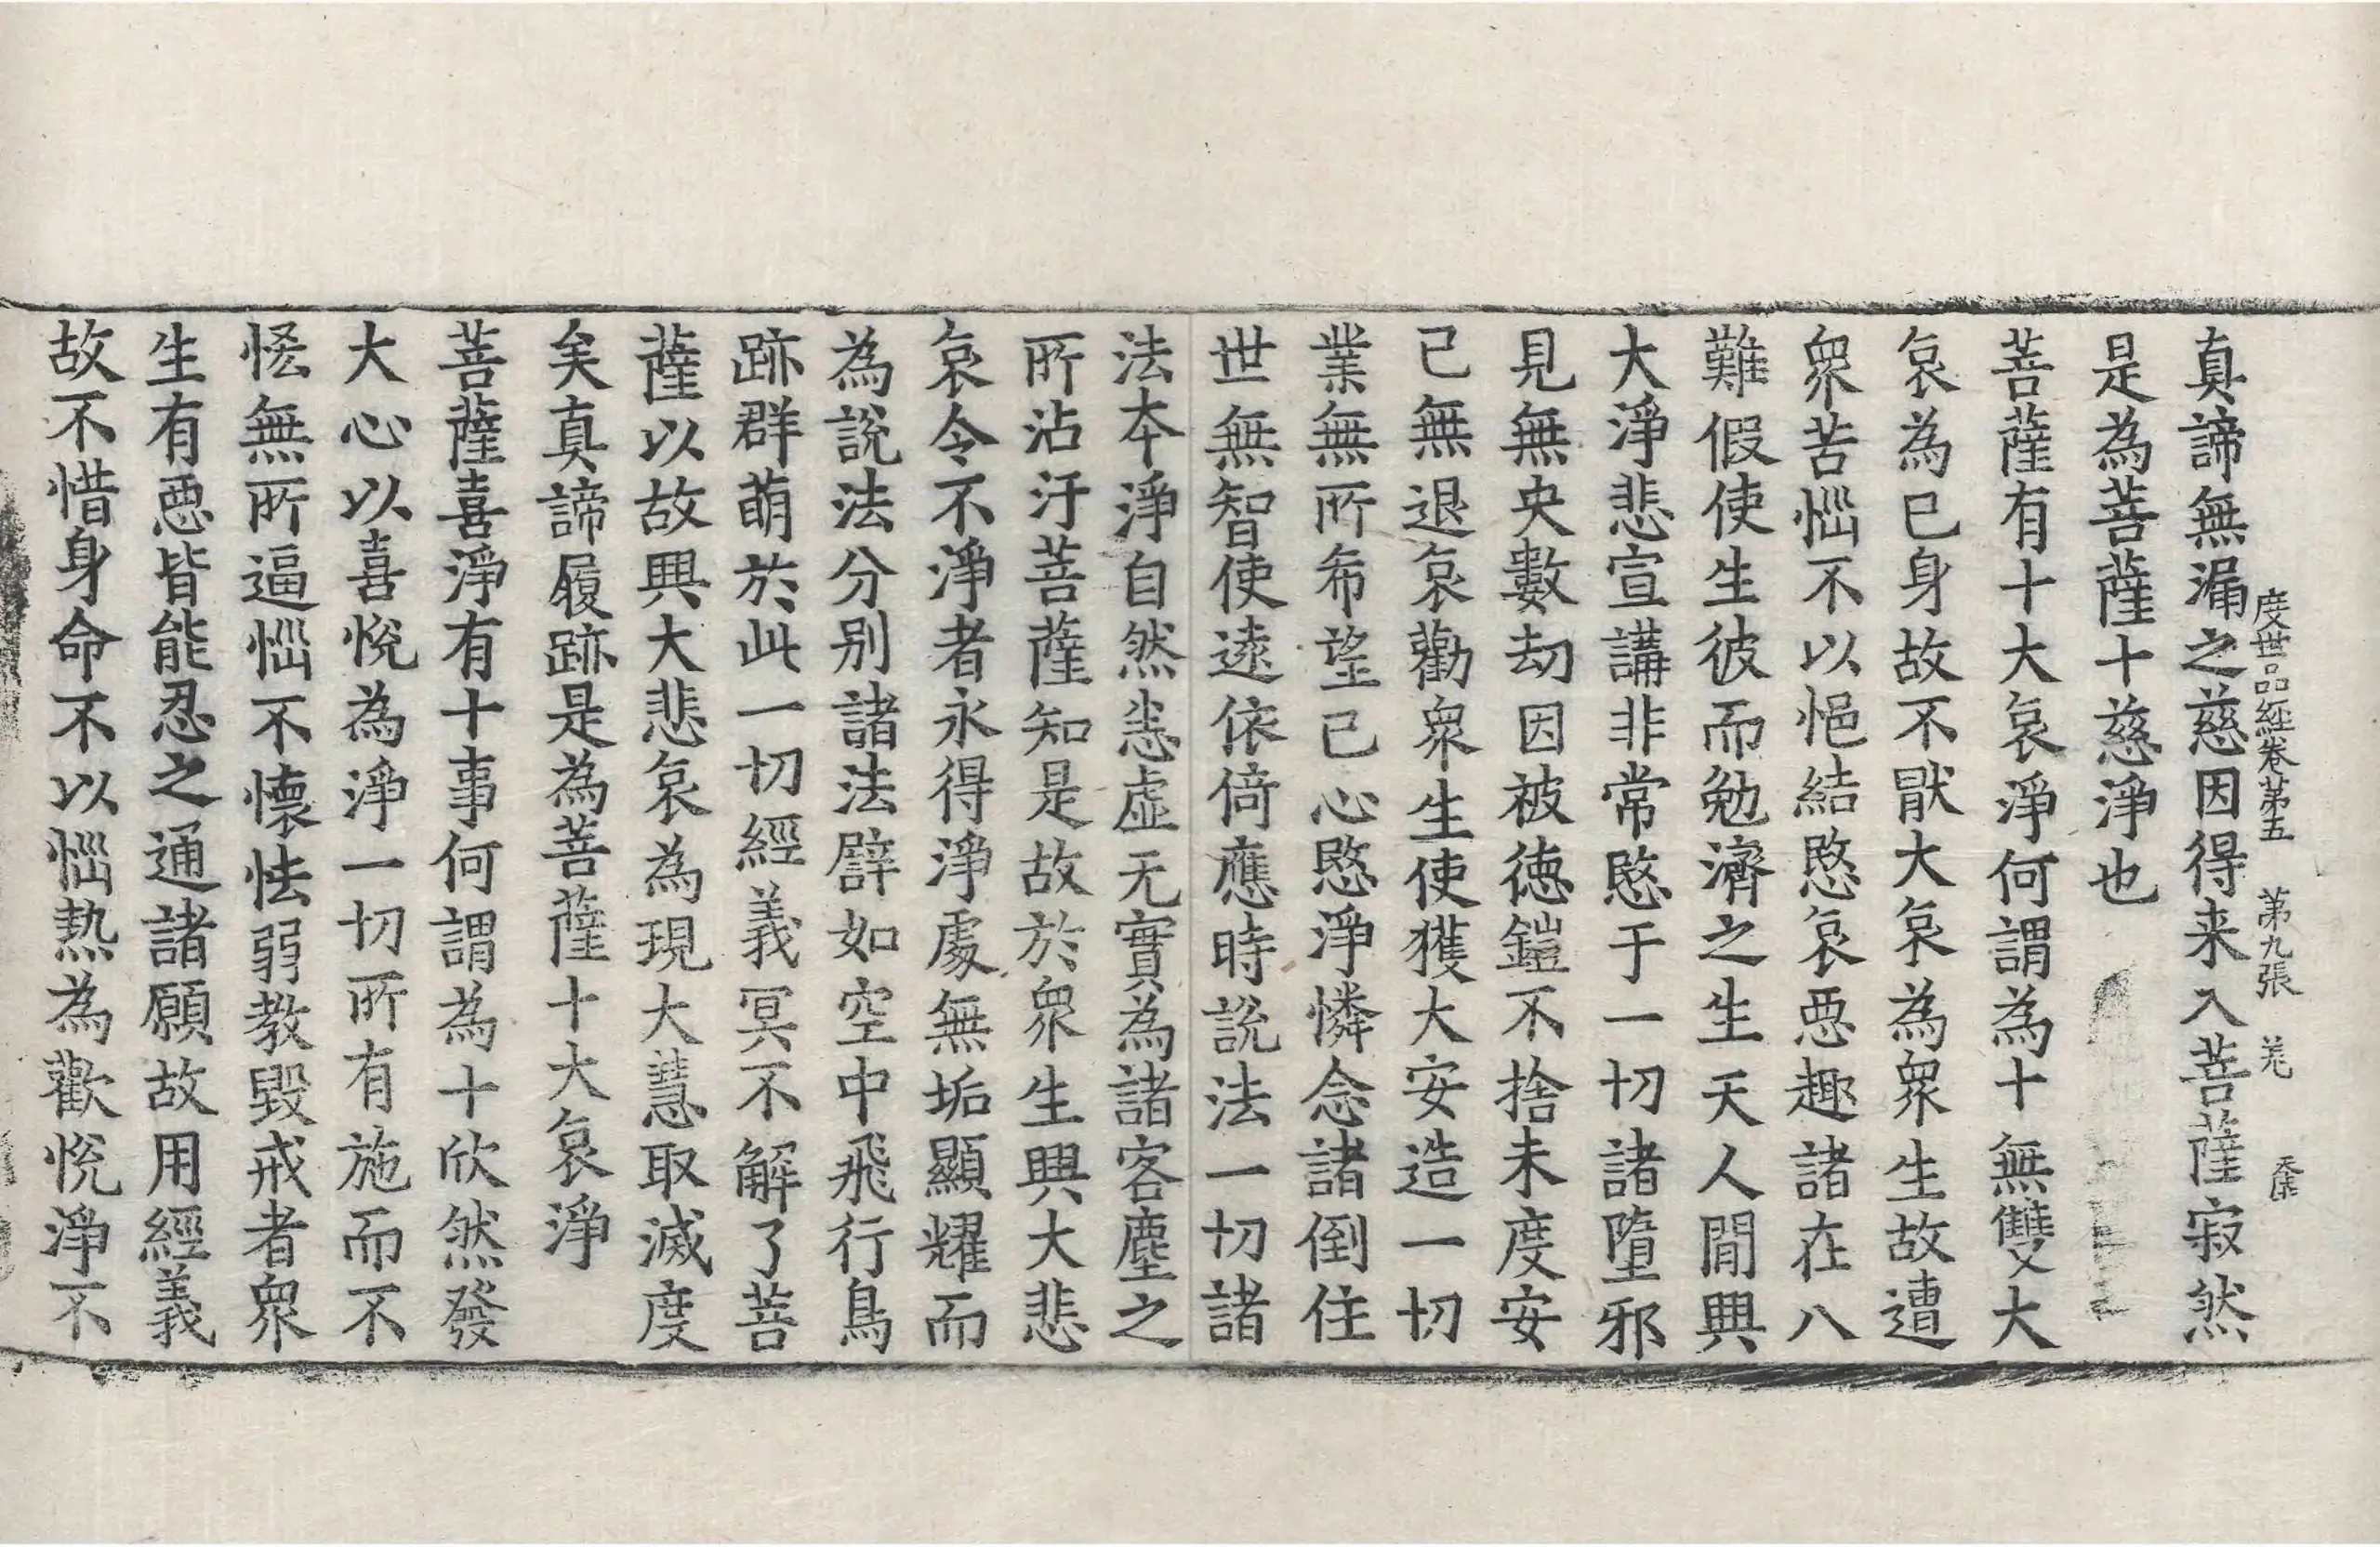 度世品經卷第五 第九張 羌
真諦無漏之慈因得来入菩薩寂然
是為菩薩十慈淨也
菩薩有十大哀淨何謂為十無雙大
哀為已身故不猒大哀為衆生故遭
衆苦惱不以悒結愍哀惡趣諸在八
難假使生彼而勉濟之生天人間興
大淨悲宣講非常愍于一切諸墮邪
見無央數劫因被德鎧不捨未度安
已無退哀勸衆生使獲大安造一切
業無所希望已心愍淨憐念諸倒住
世無智使遠依倚應時說法一切諸
法本淨自然恙虛无實為諸客塵之
所沾汙菩薩知是故於衆生興大悲
哀令不淨者永得淨處無垢顯耀而
為說法分別諸法譬如空中飛行鳥
跡群萌於此一切經義冥不解了菩
薩以故興大悲哀為現大慧取滅度
矣真諦履跡是為菩薩十大哀淨
菩薩喜淨有十事何謂為十欣然發
大心以喜悅為淨一切所有施而不
恡無所逼惱不懷怯弱教毀戒者衆
生有惡皆能忍之通諸願故用經義
故不惜身命不以惱熱為歡悅淨不